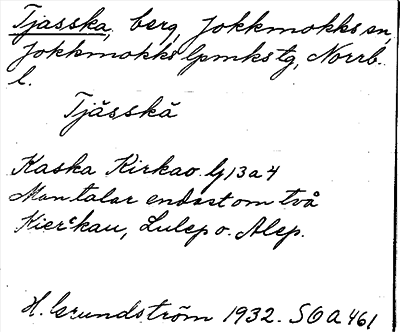 Tjasska, berg, Jokkmokks sn,
Jokkmokks lpmkstg, Norrb.
l.
Tjǎsskǎ
Kaska Kirkao. lj 13 a 4
Man talar endast om två
Kierᵋkau, Lulep o. Alep.
H. Grundström 1932. SOA 461